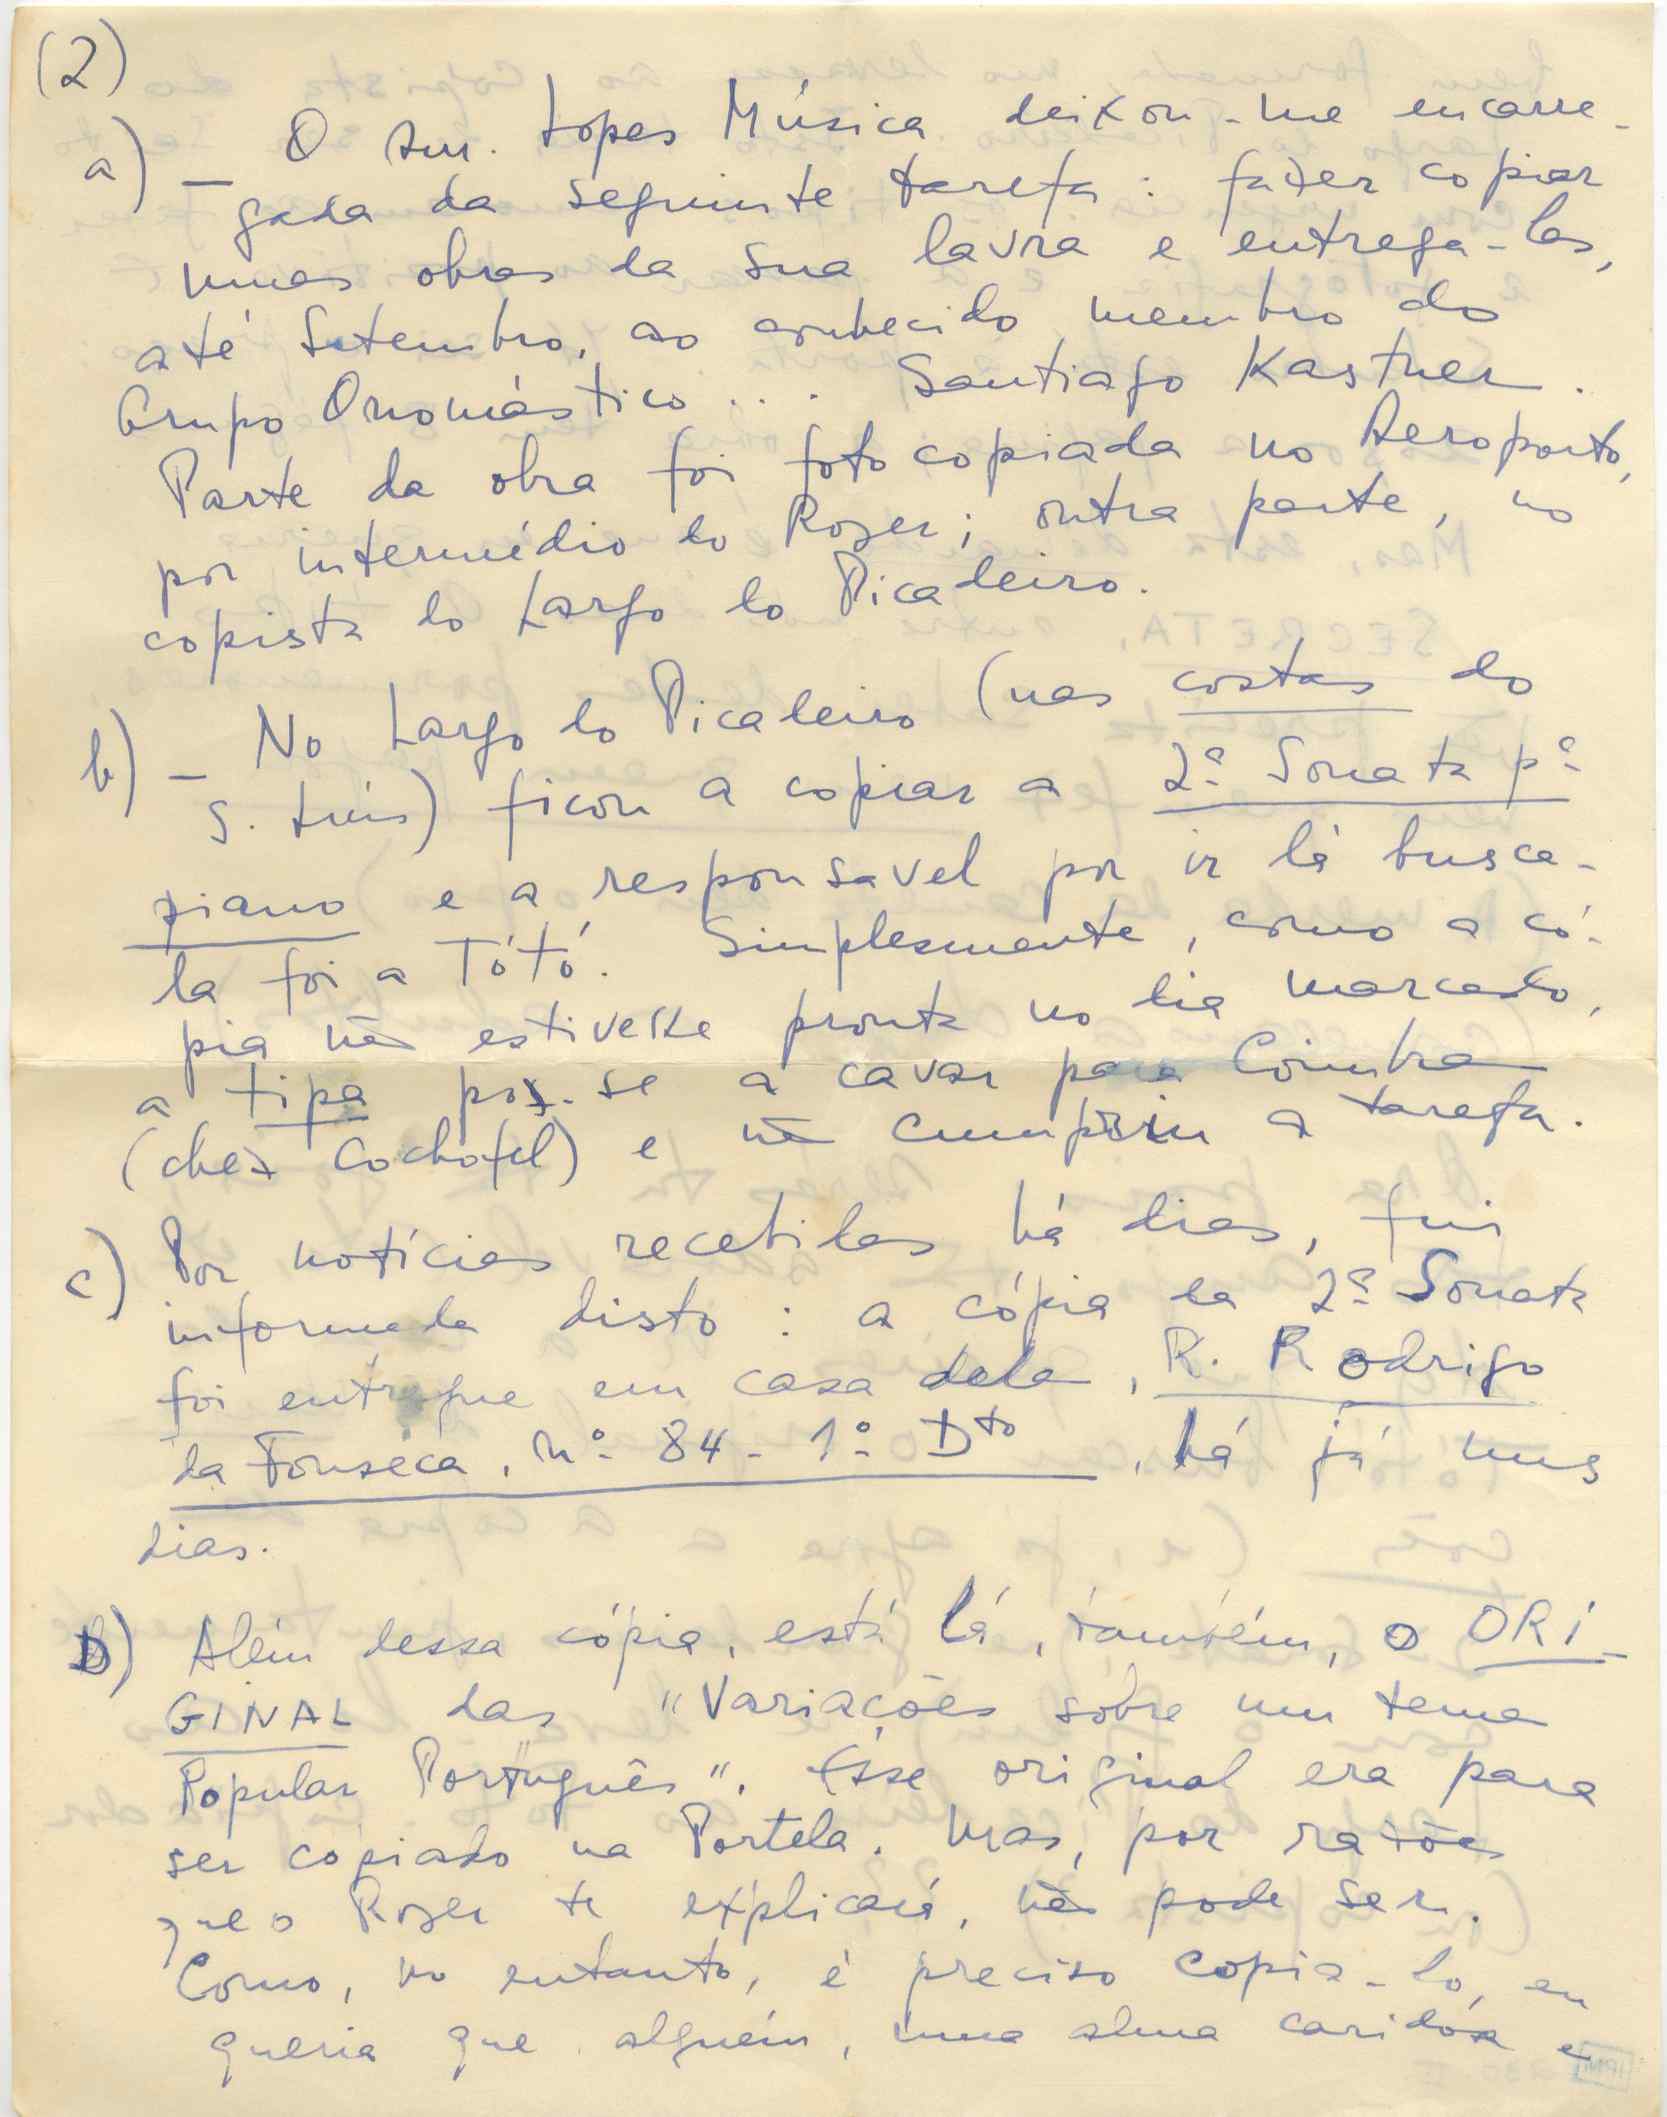 (2)
a) - O Snr. Lopes Música deixou-me encarre-
gada da seguinte tarefa: fazer copiar
umas obras da sua lavra e entrega-las,
até Setembro, ao conhecido membro do
Grupo Onomástico... Santiago Kastner.
Parte da obra foi fotocopiada no Aeroporto,
por intermédio do Roger; outra parte, no
copista do Largo do Picadeiro.
b) - No Largo do Picadeiro (nas costas do
S. Luís) ficou a copiar a 2ª Sonata pª
piano e a responsavel por ir lá busca-
la foi a Tótó. Simplesmente, como a có-
pia não estivesse pronta no dia marcado,
a tipa pôs-se a cavar para Coimbra
(chez Cochofel) e não cumpriu a tarefa.
c) Por notícias recebidas há dias, fui
informada disto: a cópia da 2ª Sonata
foi entregue em casa dela, R. Rodrigo
da Fonseca, nº 84-1º Dto, há já uns
dias.
D) Além dessa cópia, está lá, também, o ORI-
GINAL das "Variações sôbre um tema
Popular Português". Esse original era para
ser copiado na Portela. Mas, por razões
que o Roger te explicará, não pode ser.
Como, no entanto, é preciso copia-lo, eu
queria que alguém, uma alma caridosa e